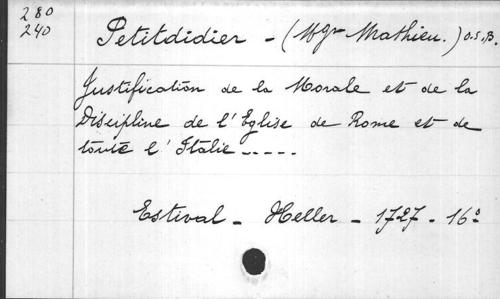 280
240
Petitdidier - (Mgr Mathieu.) O.S.B.
Justification de la Morale et de la
Discipline de l'Eglise de Rome et de
toute l'Italie -----
Estival - Heller - 1727 - 16º